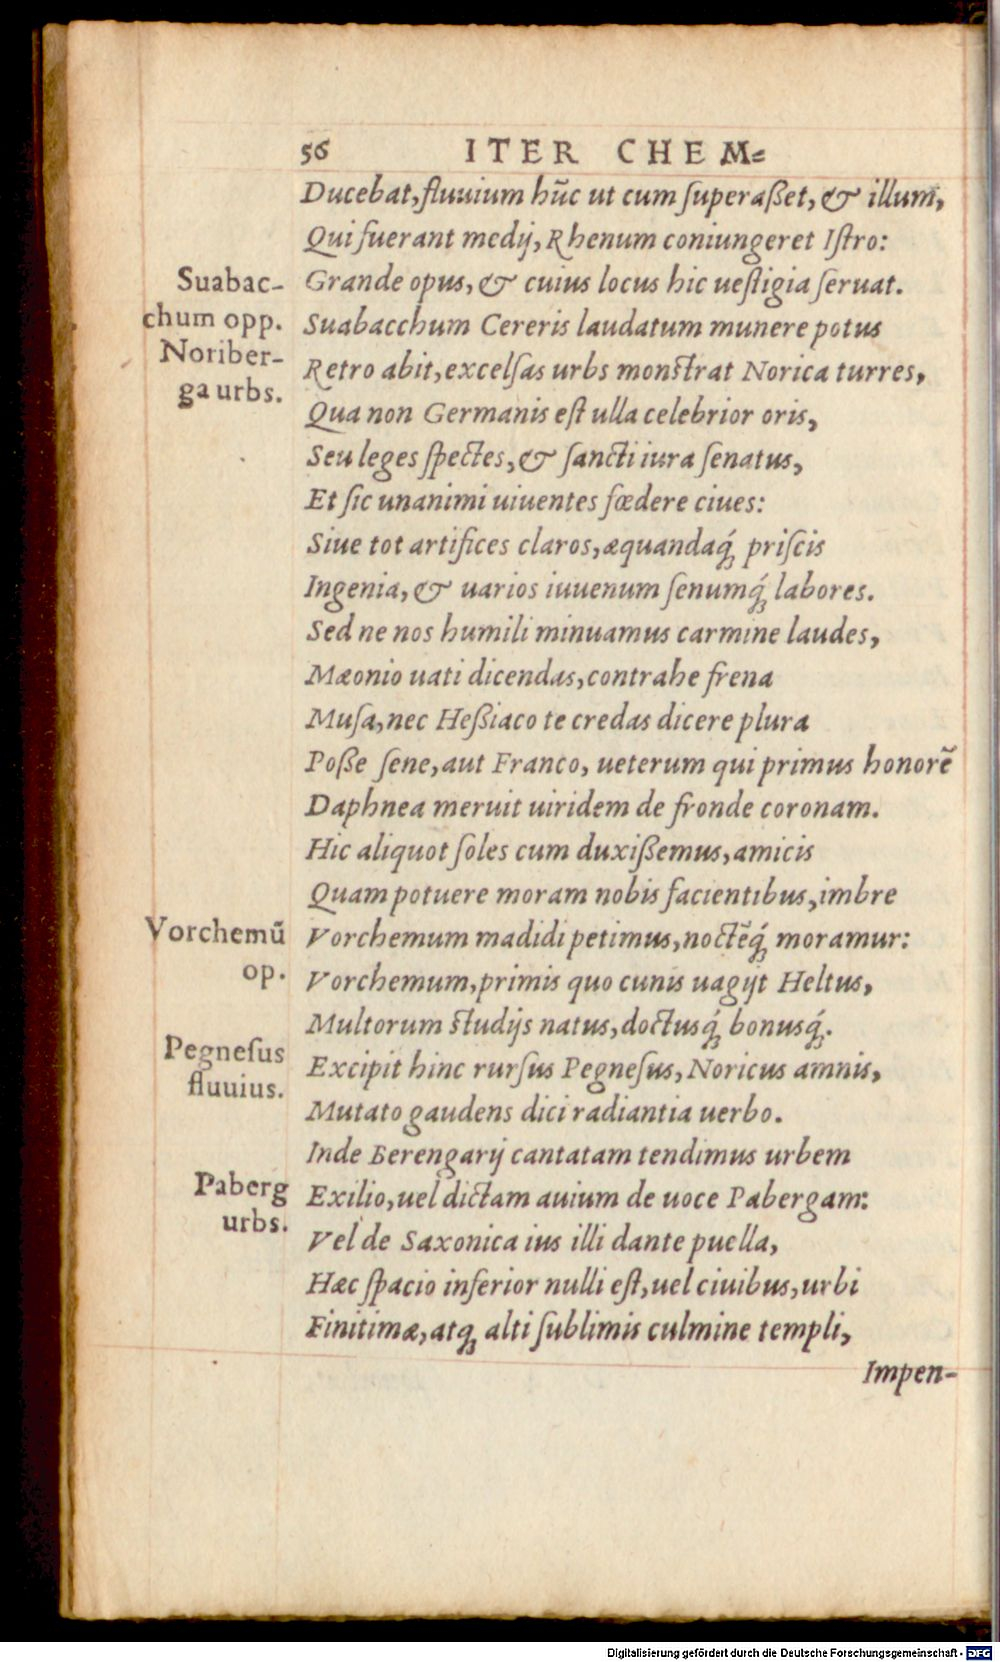 56 ITER CHEM=
Ducebat, fluuium hūc ut cum ſuperaßet, & illum,
Qui fuerant medij, Rhenum coniungeret Iſtro:
Grande opus, & cuius locus hic ueſtigia ſeruat.
Suabac-
chum opp.
Suabacchum Cereris laudatum munere potus
Noriber-
ga urbs.
Retro abit, excelſas urbs monſtrat Norica turres,
Qua non Germanis eſt ulla celebrior oris,
Seu leges ſpectes, & ſancti iura ſenatus,
Et ſic unanimi uiuentes fœdere ciues:
Siue tot artifices claros, æquandaq́; priſcis
Ingenia, & uarios iuuenum ſenumq́; labores.
Sed ne nos humili minuamus carmine laudes,
Mæonio uati dicendas, contrahe frena
Muſa, nec Heßiaco te credas dicere plura
Poße ſene, aut Franco, ueterum qui primus honorē
Daphnea meruit uiridem de fronde coronam.
Hic aliquot ſoles cum duxißemus, amicis
Quam potuere moram nobis facientibus, imbre
Vorchemū
op.
Vorchemum madidi petimus, noctēq́; moramur:
Vorchemum, primis quo cunis uagijt Heltus,
Multorum ſtudijs natus, doctusq́; bonusq́;.
Pegneſus
fluuius.
Excipit hinc rurſus Pegneſus, Noricus amnis,
Mutato gaudens dici radiantia uerbo.
Inde Berengarij cantatam tendimus urbem
Paberg
urbs.
Exilio, uel dictam auium de uoce Pabergam:
Vel de Saxonica ius illi dante puella,
Hæc ſpacio inferior nulli eſt, uel ciuibus, urbi
Finitimæ, atq; alti ſublimis culmine templi,
Impen-
Digitalisierung gefördert durch die Deutsche Forschungsgemeinschaft - DFG